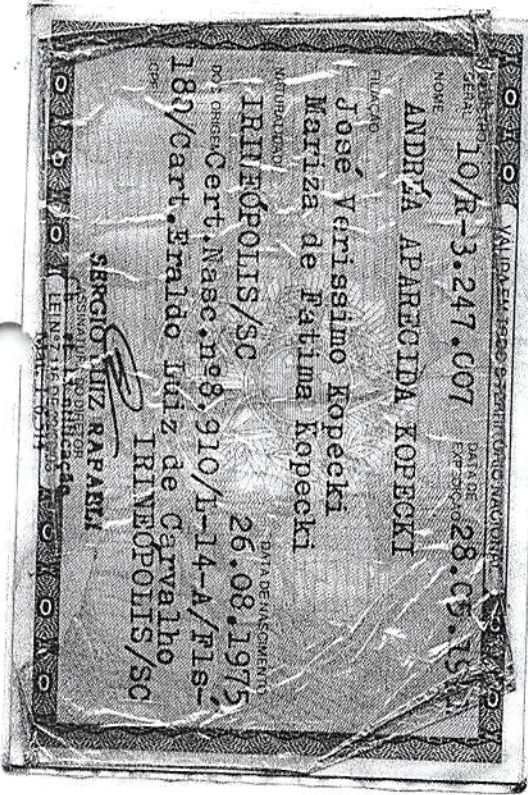 VÁLIDA EM TODO O TERRITÓRIO NACIONAL
GERAL 10/R-3.247.007 DATA DE EXPEDIÇÃO 28.05.
NOME
ANDRÉA APARECIDA KOPECKI
FILIAÇÃO
José Verissimo Kopecki
Mariza de Fatima Kopecki
NATURALIDADE DATA DE NASCIMENTO
IRINEÓPOLIS/SC 26.08.1975
DOC ORIGEM Cert.Nasc.nº8.910/L-14-A/Fls-
180/Cart.Eraldo Luiz de Carvalho
CPF IRINEÓPOLIS/SC
SERGIO LUIZ RAFAELI
ASSINATURA DO DIRETOR
LEI Nº 7.116 DE